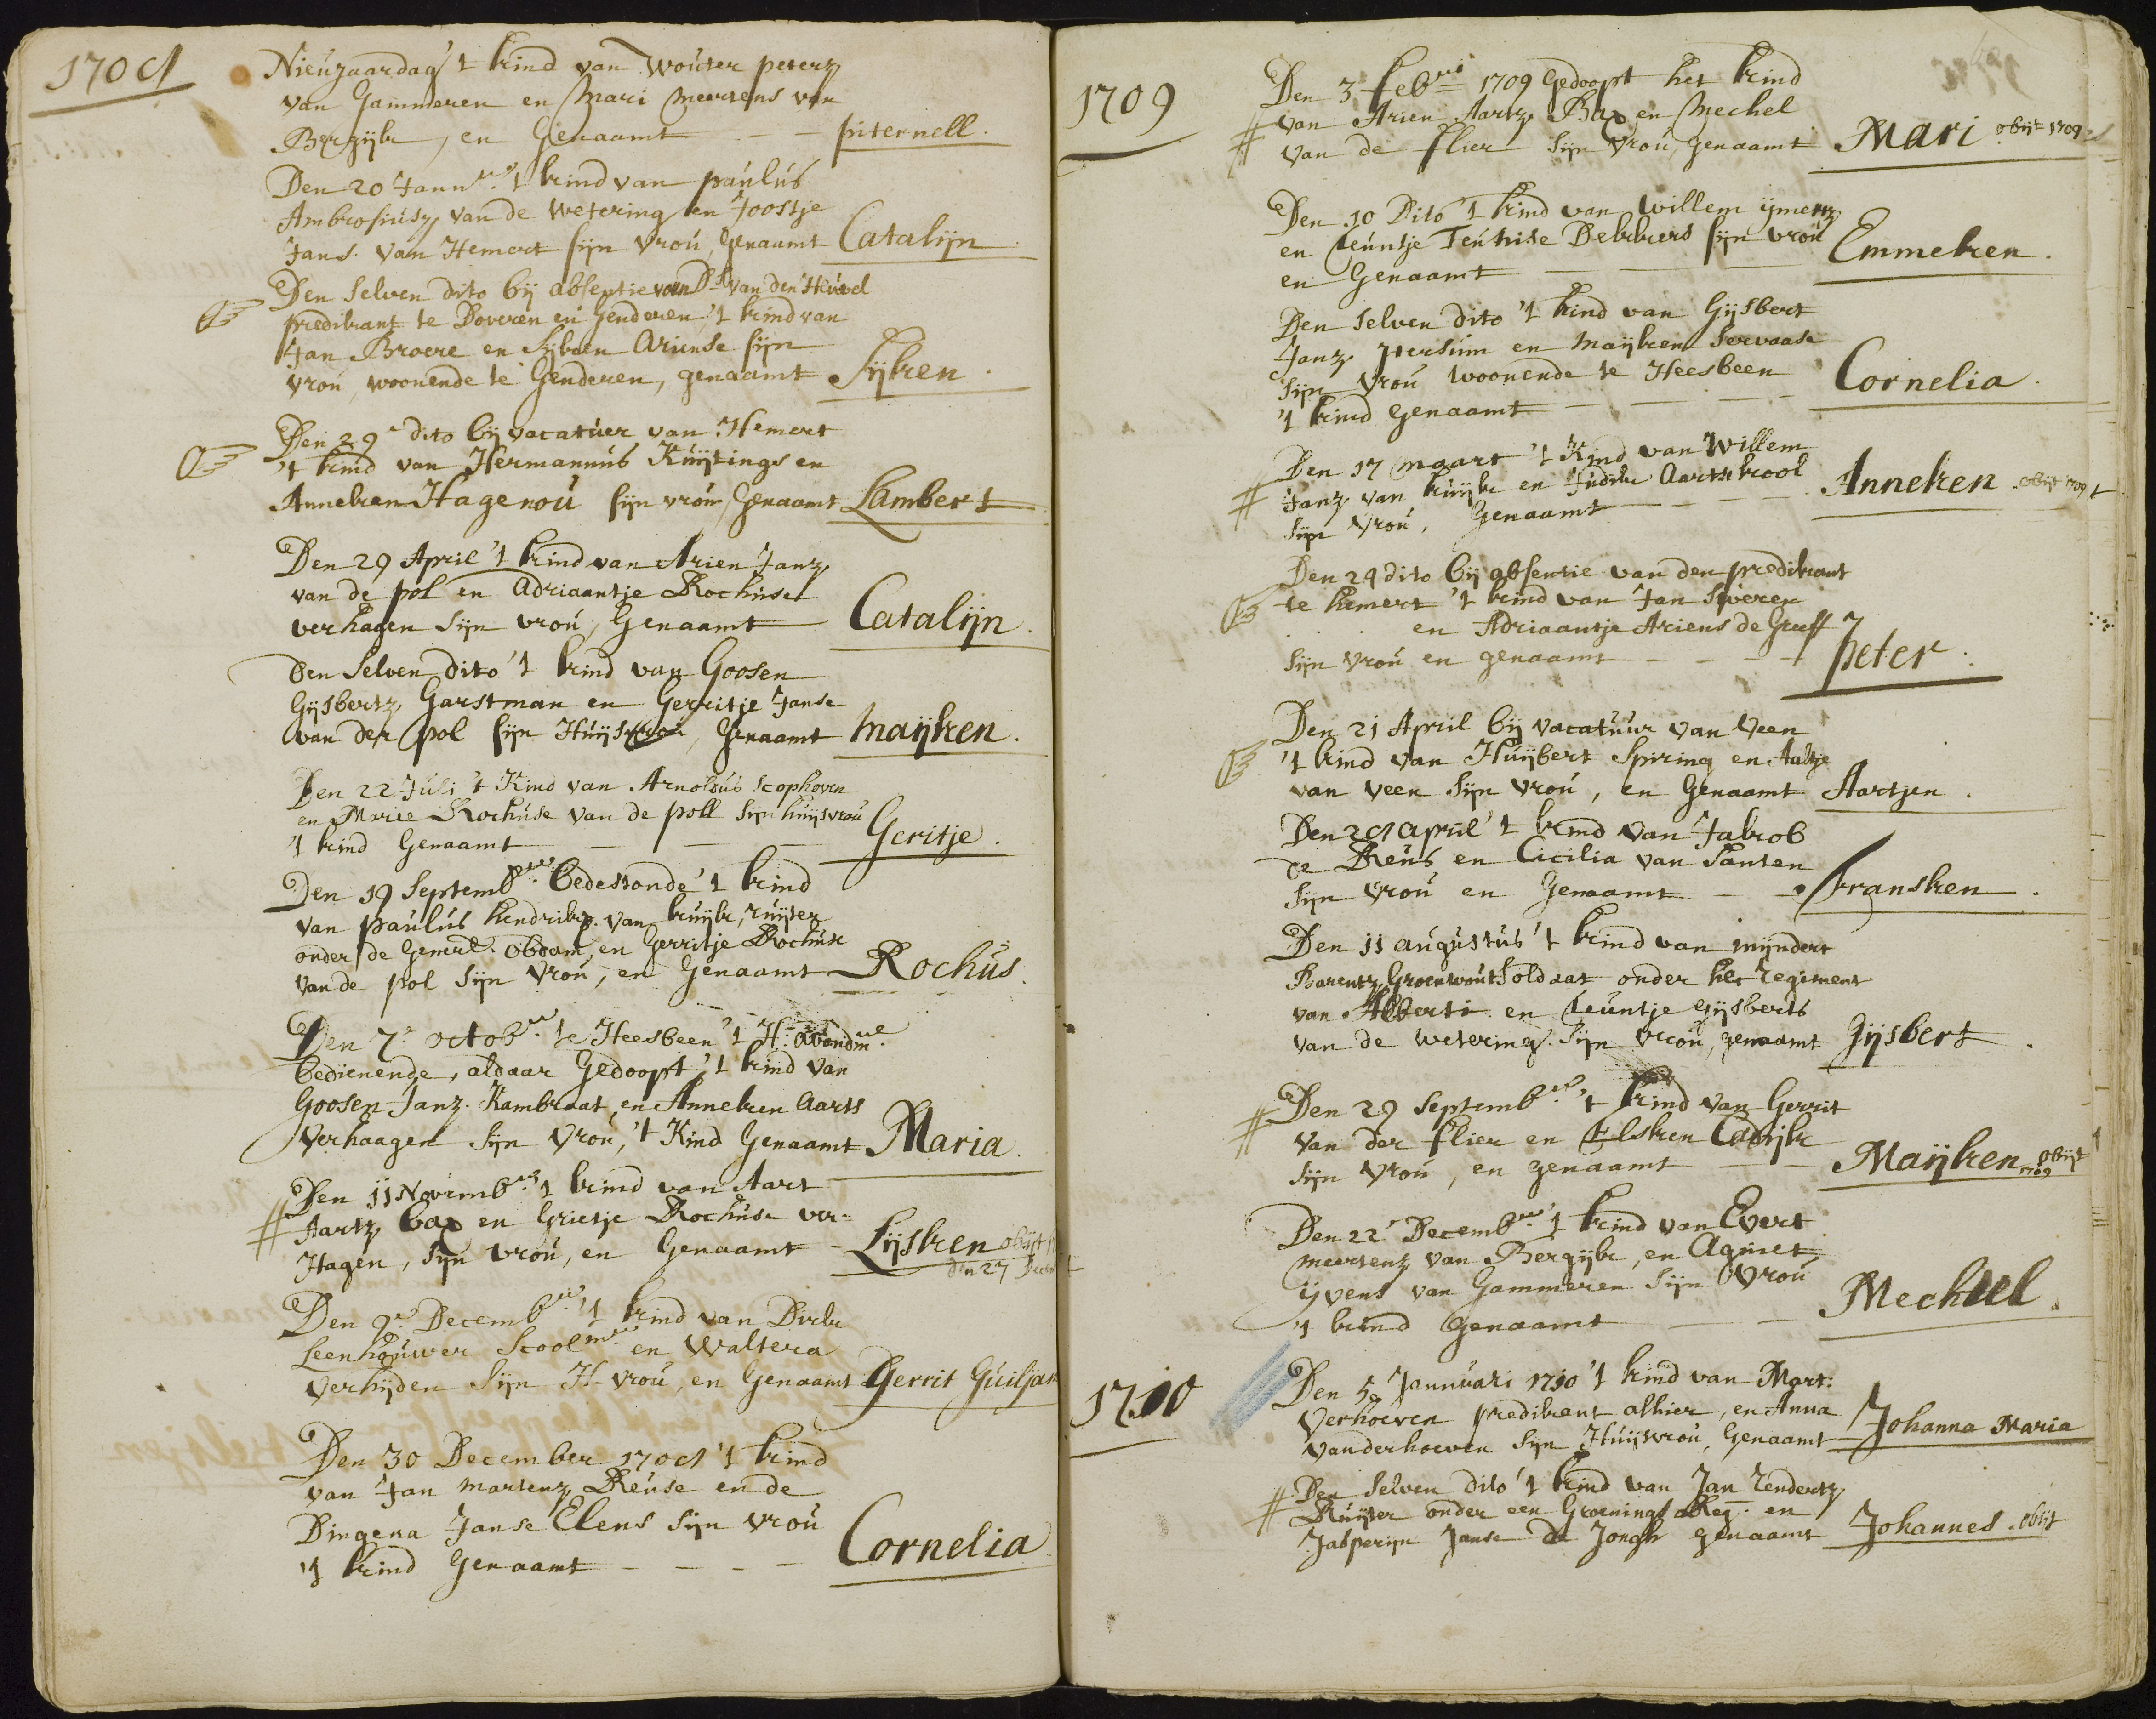 1708
Nieujaardag 't kind van Wouter peterz
van Gammeren en Mari Meertens van
Bergijk, en Genaamt — — piternell.
Den 20 Jann 't kind van paulus
Ambrosiusz van de Wetering en Joostje
Jans. van Hemert sijn vrou, genaamt Catalijn
Den selven dito bij absentie van Ds van den Heuvel
predikant te Doveren en Genderen, 't kind van
Jan Broere en Sijken Ariense sijn
vrou, woonende te Genderen, genaamt Sijken.
Den 29 dito bij vacatuer van Hemert
't kind van Hermannus Kuijtings en
Anneken Hagenou sijn vrou, Genaamt Lambert
Den 29 April 't kind van Arien Janz
van de pol en Adriaantje Rochuse
verhagen sijn vrou, Genaamt Catalijn.
Den selven dito 't kind van Goosen
Gijsbertz Garstman en Gerritje Janse
van der pol sijn Huijsvrou, Genaamt maijken.
Den 22 Juli 't Kind van Arnoldus Scophoven
en Marie Rochuse van de poll sijn huijsvrou
't kind Genaamt — — — Geritje.
Den 19 Septemb bedestonde 't kind
van paulus hendrikz. van kuijk, ruijter
onder de Generl. Obdam, en Gerritje Rochuse
van de pol sijn vrou, en Genaamt Rochus.
Den 7 octob te Heesbeen 't H. Avondm
bedienende, aldaar Gedoopt, 't kind van
Goosen Janz. Kambraat, en Anneken Aarts
Verhaagen sijn vrou, 't Kind Genaamt Maria.
Den 11 Novemb 't kind van Aart
# Aartz bax en Grietje Rochuse ver=
Hagen, sijn vrou, en Genaamt - Lijsken obijt
den 27
Den 9 Decemb 't kind van Dirk
Leenhouwer Scoolm en Waltera
Verhijden sijn H-vrou, en Genaamt Gerrit Guiljam
Den 30 December 1708 't kind
van Jan martenz Reuse en de
Dingena Janse Elens sijn vrou
't kind Genaamt - - - - Cornelia
1709
Den 3 feb 1709 Gedoopt het kind
# van Arien Aartz. Bax en Mechel
van de flier sijn vrou, genaamt Mari. obijt 1709
Den 10 Dito 't kind van Willem ijmertz
en Teuntje Teunise Dekkers sijn vrou
en Genaamt — — — Emmeken.
Den selven dito 't kind van Gijsbert
Janz. Hersum en Maijken Servaase
sijn vrou woonende te Heesbeen
't kind genaamt - - - Cornelia.
Den 17 maart 't Kind van Willem
# Janz van kuijk en Judik Aarts kool
sijn vrou, Genaamt — — Anneken obijt 1709
Den 29 dito bij absentie van den predikant
te hemert 't kind van Jan Sweren
en Adriaantje Ariens de Greeff
sijn vrou en genaamt - - - - peter.
Den 21 April bij vacatuur van Veen
't kind van Huijbert Spiring en Aaltje
van Veen sijn vrou, en Genaamt Aartjen.
Den 28 april 't kind van Jakob
de Reus en Cicilia van Santen
sijn vrou en Genaamt — — fransken.
Den 11 augustus 't kind van mijndert
Barentz Groenwout soldaat onder het regiment
van Alberti. en Teuntje Gijsberts
van de wetering. sijn vrou, genaamt Gijsbert.
Den 29 Septemb 't kind van Gerrit
# van der flier en Elsken Cabijk
sijn vrou, en genaamt — — Maijken obijt
1709
Den 22 Decemb 't kind van Evert
meertenz van Bergijk, en Agniet
ijvens van Gammeren sijn vrou
't kind Genaamt — — Mechtel.
1710
Den 5 Januari 1710 't kind van Mart.
Verhoeven predikant alhier, en Anna
vanderhoeven sijn Huijsvrou, Genaamt Johanna Maria
Den selven dito 't kind van Jan Lendertz
# Ruijter onder een Groenings Reg. en
Jasperijn Janse de Jongh genaamt Johannes. obijt